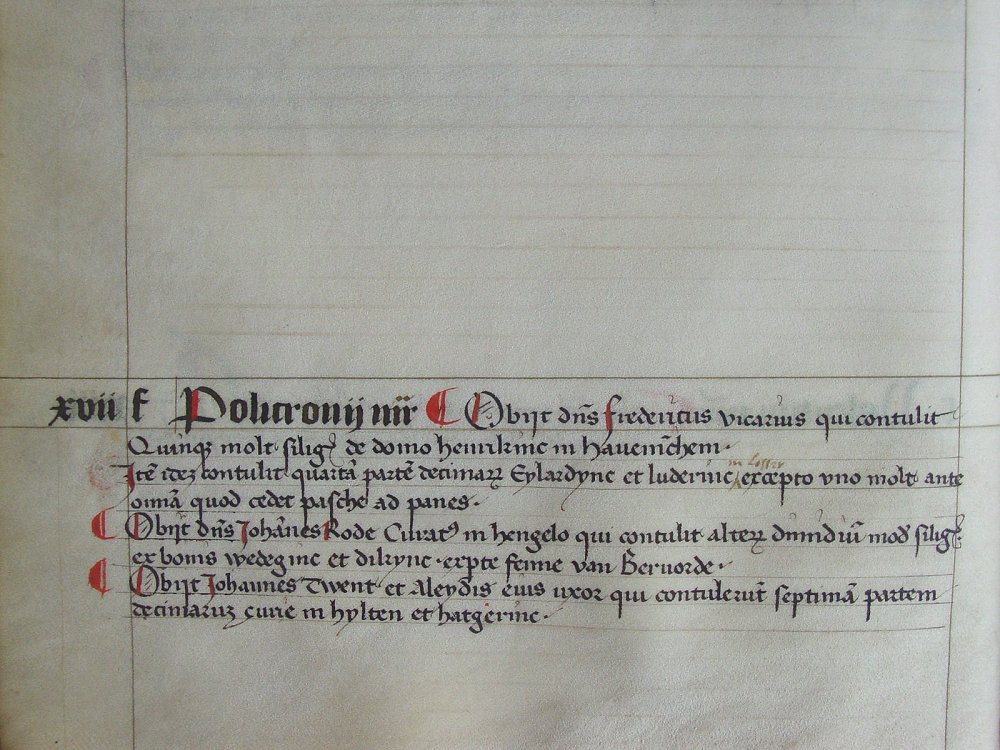 xvii f Policronij mr̄ ¶ Obijt dn̄s fredericus vicarius qui contulit
Quinqꝫ molt siligꝭ de domo henrikinc in Hauenichem.
in losser
Itē idez contulit quartā partē decimarꝝ Eylardync et luderinc excepto vno molt ante
omīa quod cedet pasche ad panes.
¶ Obijt dn̄s Johānes Rode Curatꝰ in hengelo qui contulit alterꝝ dimidiū mod̄ siligꝭ
ex bonis wedeginc et dilrync. erpte fenne van Beruorde.
¶ Obijt Johannes Twent et Aleydis eius uxor qui contulerūt septimā partem
decimaruꝫ curie in hylten et hatgerinc.